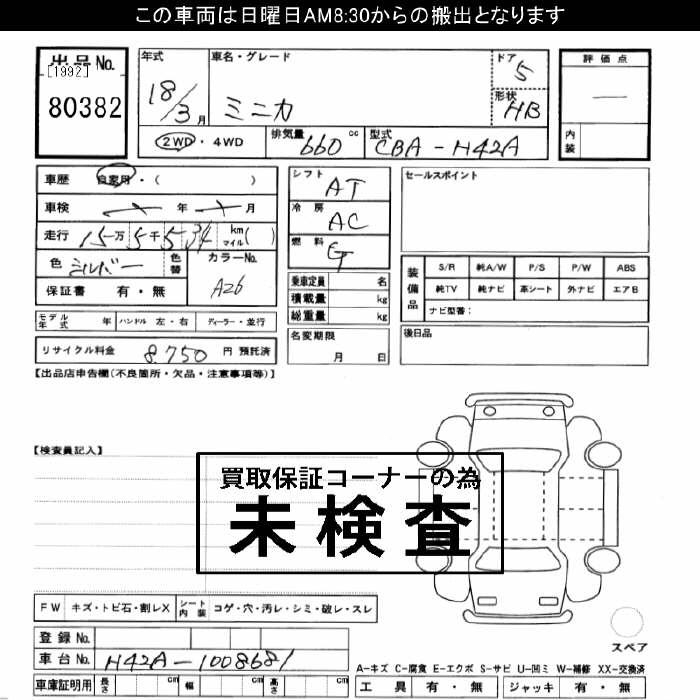 この車両は日曜日AM8:30からの搬出となります
出品No.
[1992]
80382
年式
18/3月
車名・グレード
ミニカ
ドア
5
形状
HB
評価点
―
内装
2WD・4WD
排気量
660cc
型式
CBA-H42A
車歴
自家用・( )
車検
年 月
走行
15万5千534
km
マイル( )
色
シルバー
色替
カラーNo.
A26
保証書 有・無
シフト
AT
冷房
AC
燃料
G
乗車定員 名
積載量 kg
総重量 kg
セールスポイント
装備品
S/R 純A/W P/S P/W ABS
純TV 純ナビ 革シート 外ナビ エアB
ナビ型番:
モデル年式 年 ハンドル 左・右 ディーラー・並行
名変期限
月 日
後日品
リサイクル料金 8,750 円 預託済
【出品店申告欄(不良箇所・欠品・注意事項等)】
【検査員記入】
買取保証コーナーの為
未検査
FW キズ・トビ石・割レX シート内装 コゲ・穴・汚レ・シミ・破レ・スレ
登録No.
車台No. H42A-1008681
車庫証明用 長さ cm 幅 cm 高さ cm
スペア
A-キズ C-腐食 E-エクボ S-サビ U-凹ミ W-補修 XX-交換済
工具 有・無 ジャッキ 有・無